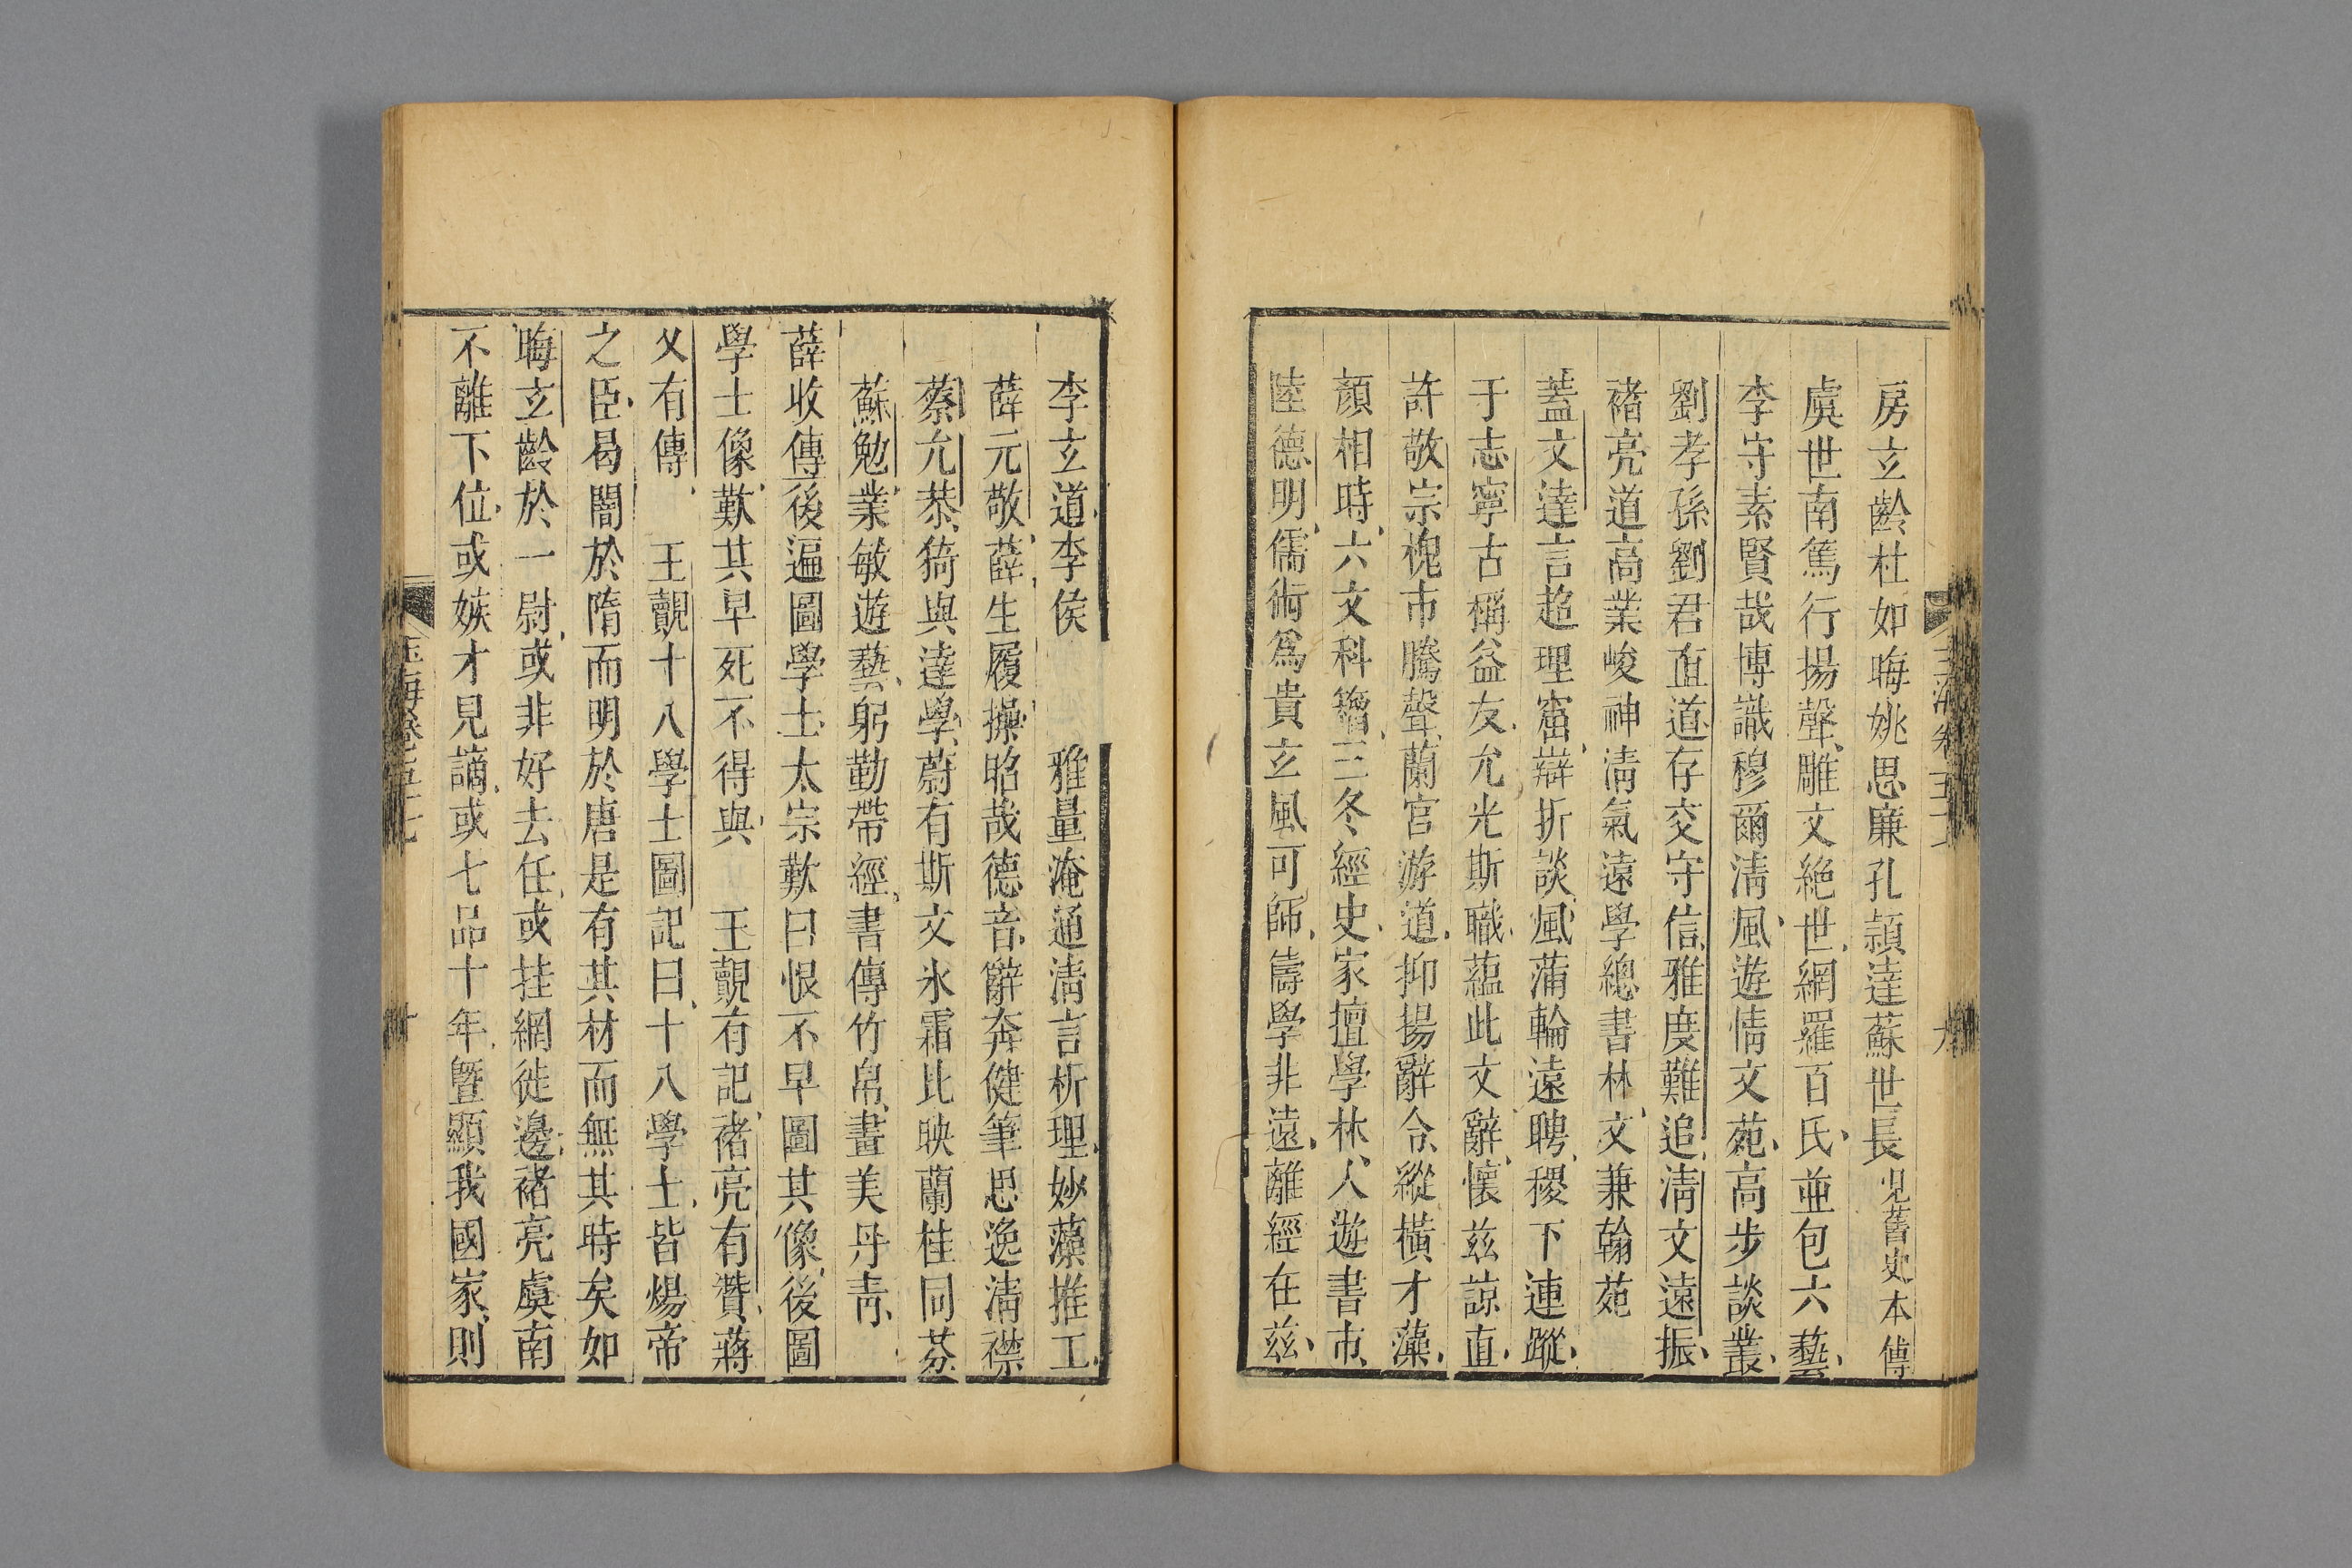 房玄齡杜如晦姚思廉孔穎達蘇世長見舊史本傳
虞世南篤行揚聲雕文絶世網羅百氏並包六藝
李守素賢哉博識穆爾清風遊情文苑高步談叢
劉孝孫劉君直道存交守信雅度難追清文遠振
褚亮道高業峻神清氣遠學總書林文兼翰苑
蓋文達言超理窟辯折談風蒲輪遠聘稷下連蹤
于志寧古稱益友允光斯職蘊此文辭懷茲諒直
許敬宗槐市騰聲蘭宮游道抑揚辭令縱橫才藻
顏相時六文科籀三冬經史家擅學林人遊書市
陸德明儒術爲貴玄風可師儔學非遠離經在茲
李玄道李侯雅量淹通清言析理妙藻推工
薛元敬薛生履操昭哉德音辭奔健筆思逸清襟
蔡允恭猗與達學蔚有斯文氷霜比映蘭桂同芬
蘇勉業敏遊藝躬勤帶經書傳竹帛畫美丹青
薛收傳後遍圖學士太宗歎曰恨不早圖其像後圖
學士像歎其早死不得與 王覿有記褚亮有贊蔣
乂有傳 王覿十八學士圖記曰十八學士皆煬帝
之臣曷闇於隋而明於唐是有其材而無其時矣如
晦玄齡於一尉或非好去任或挂網徙邊褚亮虞南
不離下位或嫉才見謫或七品十年曁顯我國家則
玉海卷五十七 十